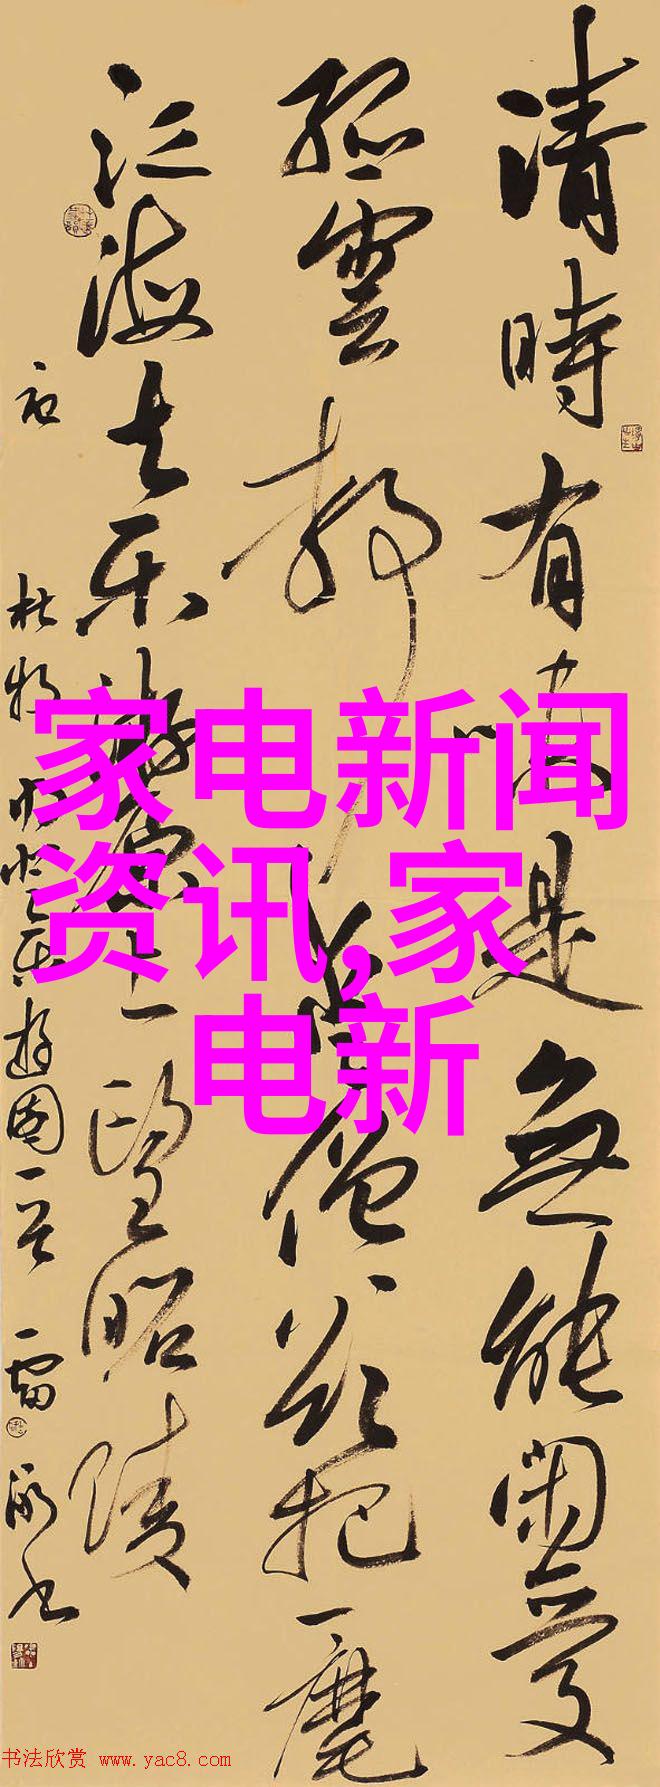 清時有味是無能閑愛
孤雲静愛僧欲把一麾
江海去乐游原上望昭陵
杜牧 登乐遊園一首 雷 书
家电新闻
资讯,家
电新
书法欣赏 www.yac8.com